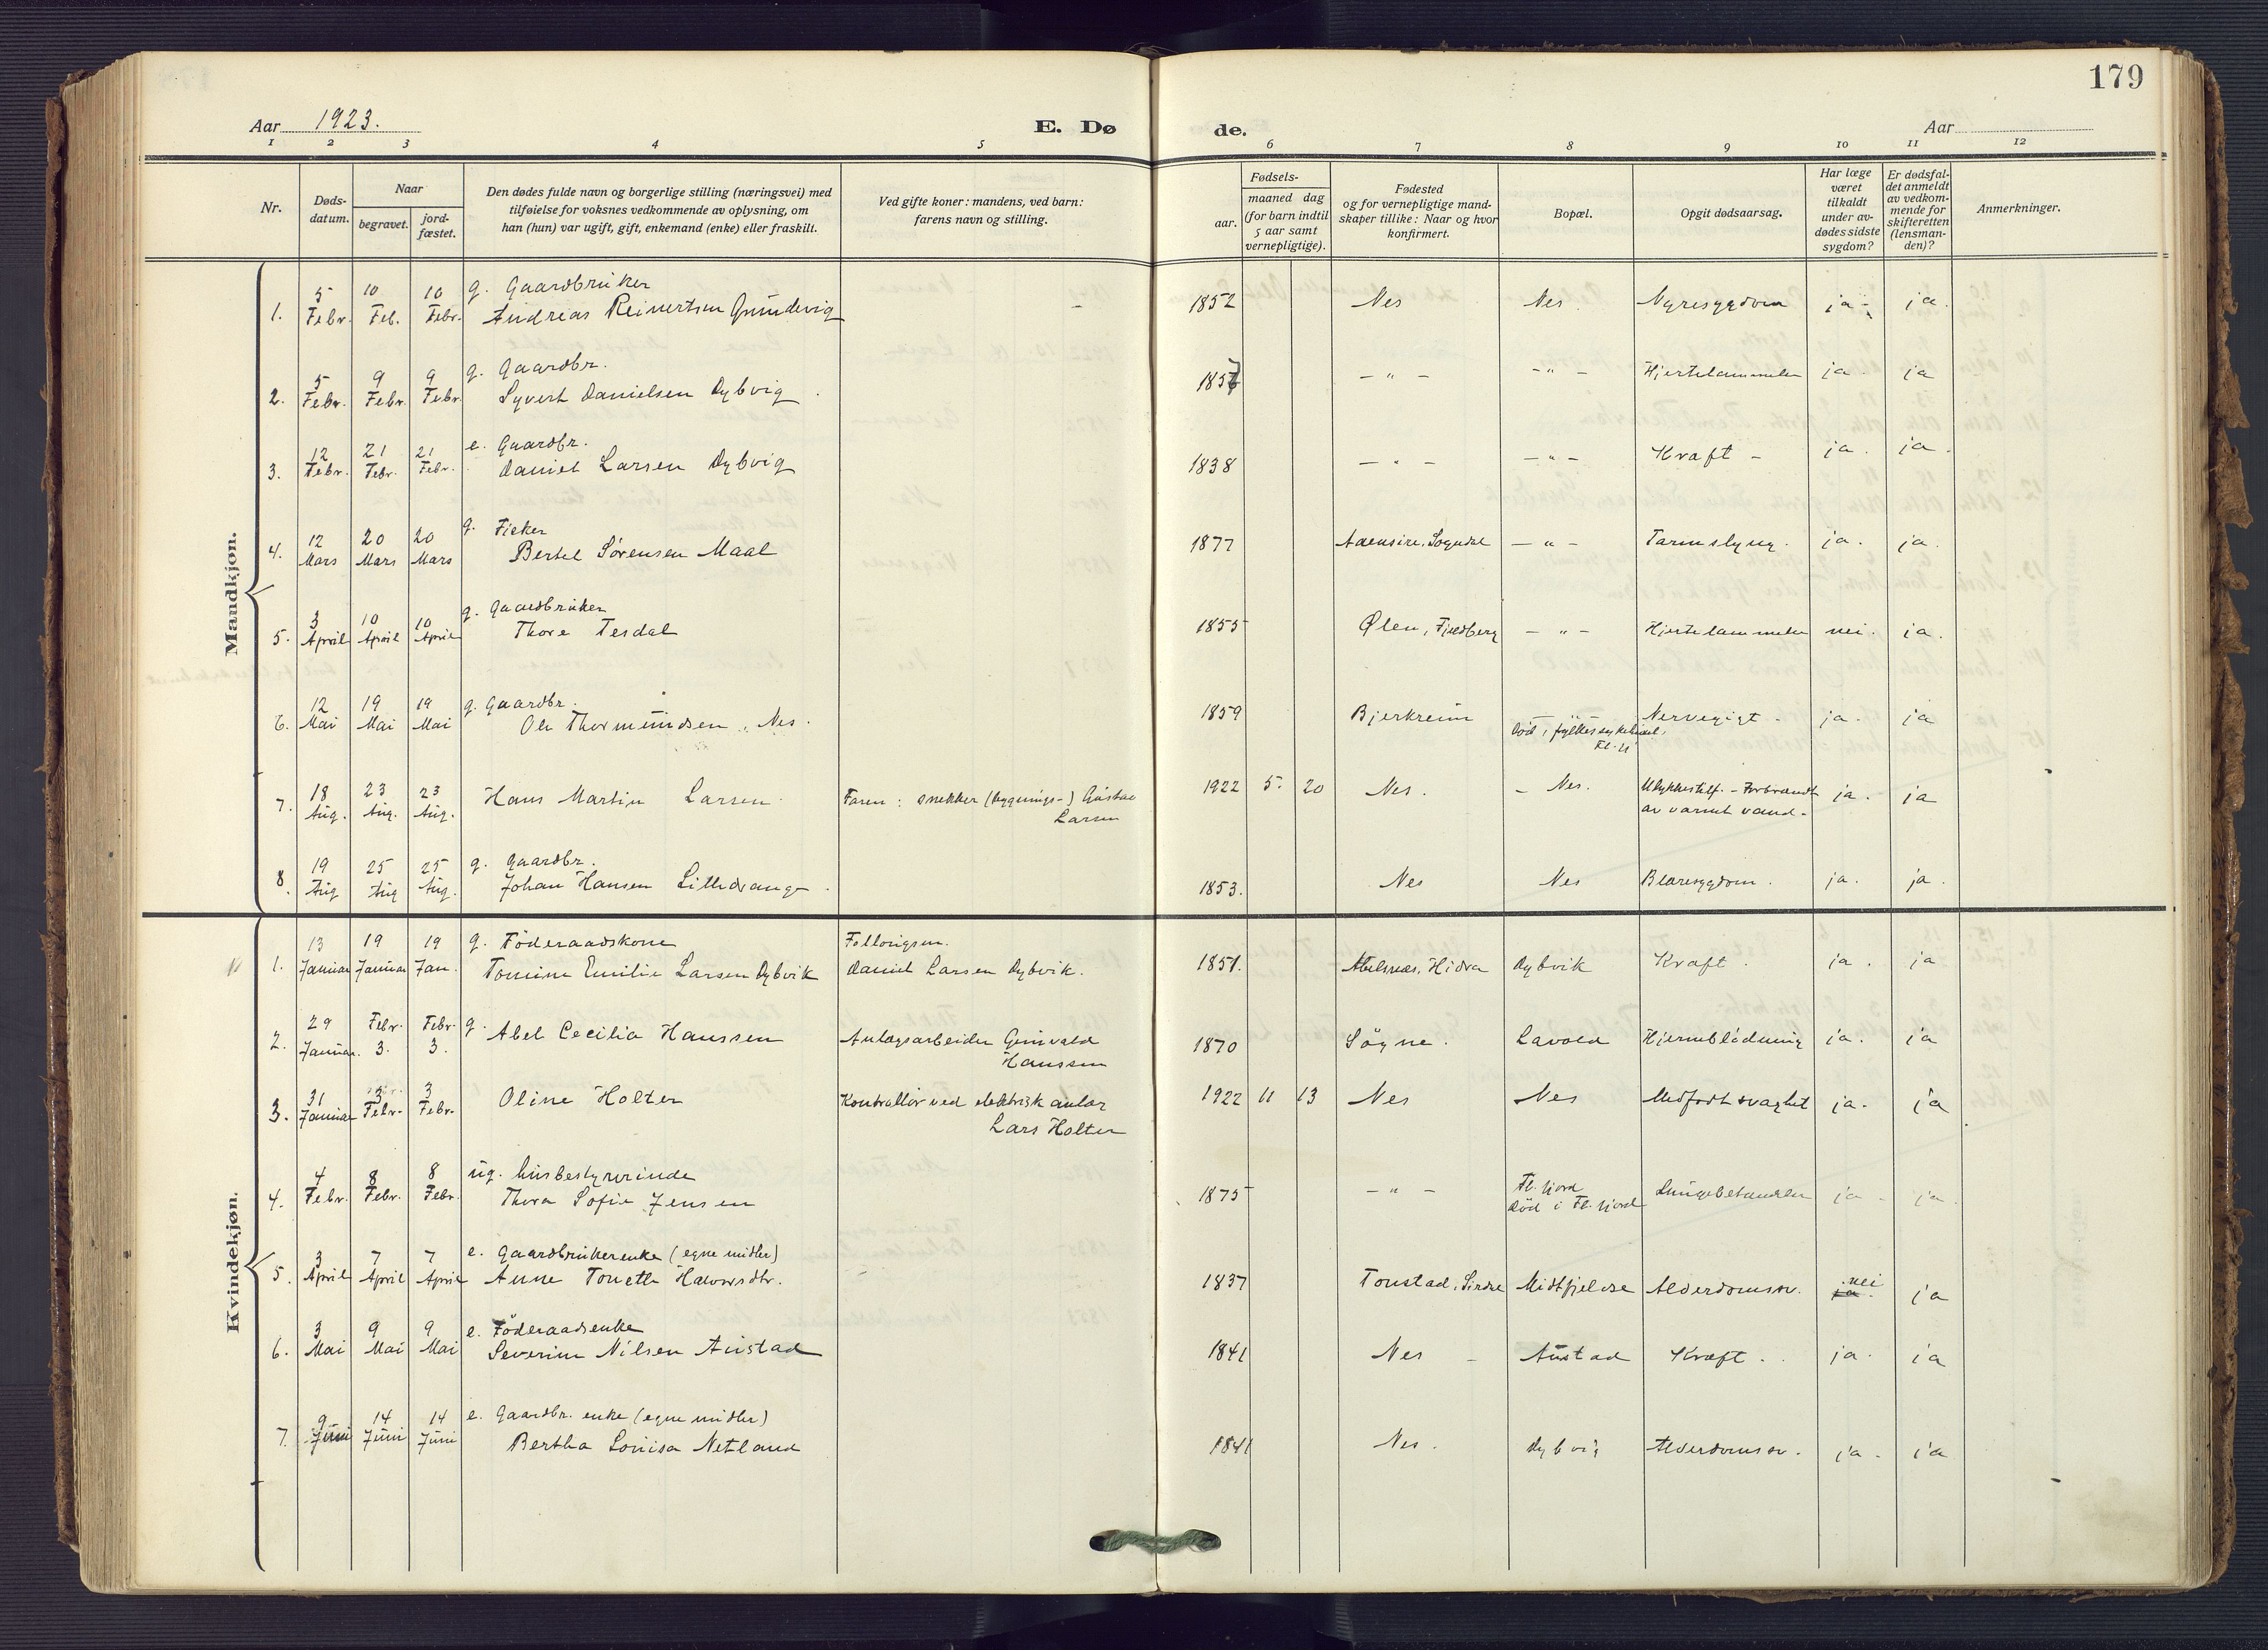 179
Aar 1923.
E. Dø
de.
Aar
1 2 3 4 5 6 7 8 9 10 11 12
Nr.
Døds-
datum.
Naar
begravet.
jord-
fæstet.
Den dødes fulde navn og borgerlige stilling (næringsvei) med
tilføielse for voksnes vedkommende av oplysning, om
han (hun) var ugift, gift, enkemand (enke) eller fraskilt.
Ved gifte koner: mandens, ved barn:
farens navn og stilling.
Fødsels-
aar.
maaned dag
(for barn indtil
5 aar samt
vernepligtige).
Fødested
og for vernepligtige mand-
skaper tillike: Naar og hvor
konfirmert.
Bopæl.
Opgit dødsaarsag.
Har læge
været
tilkaldt
under av-
dødes sidste
sygdom?
Er dødsfal-
det anmeldt
av vedkom-
mende for
skifteretten
(lensman-
den)?
Anmerkninger.
Mandkjøn.
5 10 10 g. Gaardbruker
1. Febr. Feb. Febr. Andreas Reinertsen Grundevig - 1852 Nes Nes. Nyresygdom ja - ja.
5 9 9 g. Gaardbr.
2. Febr. Febr. Febr. Syvert Danielsen Dybvig 1857 - " - - " - Hjertelammelse ja. ja
12 21 21 e. Gaardbr.
3. Febr. Febr. Febr. Daniel Larsen Dybvig 1838 - " - - " - Kræft - ja. ja.
12 20 20 g. Fisker
4. Mars Mars Mars Bertel Sørensen Maal 1877 Aaensire, Sogndal - " - Tarmslyng. ja. ja.
3 10 10 g. Gaardbruker
5. April April April Thore Tesdal 1855 Ølen, Fjeldberg - " - Hjertelammelse nei. ja.
12 19 19 g. Gaardbr.
6. Mai Mai Mai Ole Thormundsen, Nes. 1859 Bjerkreim Nervegigt - ja. ja
Död i fylkessykehuset,
Fl.fj.
18 23 23
7. Aug. Aug. Aug. Hans Martin Larsen. Faren: snekker (bygnings-) Gustav 1922 5. 20 Nes. - Nes. Ulykkestilf. - Forbrændt ja. ja
Larsen av varmt vand -
19 25 25 g. Gaardbr.
8. Aug Aug Aug. Johan Hansen Lilledrange 1853. Nes Nes Blæresygdom. ja. ja.
Kvindekjøn.
13 19 19 g. Föderaadskone
1. Januar Januar Jan. Tomine Emilie Larsen Dybvik Daniel Larsen Dybvik. 1851. Abelsnæs, Hidra Dybvik Kræft. ja. ja
29 Febr. Febr. g.
2. Januar. 3. 3. Abel Cecilia Hanssen Anlægsarbeider Grimvald 1870 Søgne. Lavold Hjerneblödning ja. ja
Hanssen
31 3 3
3. Januar Febr. Febr. Oline Holter Kontrollör ved elektrisk anlæg 1922 11 13 Nes Nes Medfödt svaghet ja. ja
Lars Holter
4 8 8 ug. husbestyrerinde
4. Febr. Febr. Febr. Thora Sofie Jensen 1875 - " - Fl.fjord Lungebetændelse ja - ja
Död i Fl.fjord
3 7 7 e. Gaardbrukerenke (egne midler)
5. April April April Anne Tonette Halvorsdtr. 1837 Tonstad, Sirdal Midtfjeldse Alderdomssv. nei ja
ja
3 9 9 e. Föderaadsenke
6. Mai Mai Mai Severine Nilsen Austad 1841 Nes - Austad Kræft. ja. ja
9 14 14 e. Gaardbr. enke (egne midler)
7. Juni Juni Juni Bertha Lovisa Netland 1841 Nes. Dybvig Alderdomssv. ja - ja